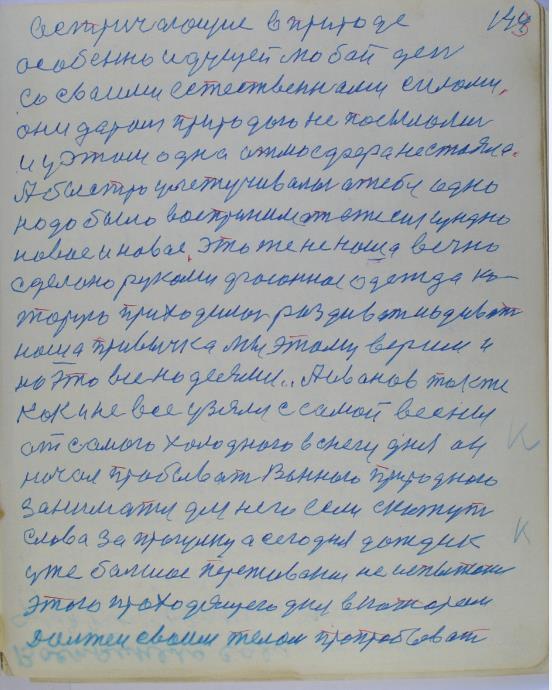 149
Встричающие в природе
особенно идущей любой ден
со своими естественными силами,
они даром природою не посылалис
и у этом одна атмосфера не стояла.
А быстро улетучивалас а тебе одно
надо было воспринимат ежесикундно
новое и новое. Это же не наша вечно
сделано руками фасонное одежда ко-
торую приходилос раздиват и одиват
наша привычка мы этому верили и
на это все надеялис.. А Иванов так же
как и не все узяли с самой весны
от самого холодного в снегу дня он
начал пробыват Ванного природного
заниматся для него если скажут
слова за прогулку а сегодня дождик
уже балшое переживания не испытано
этого проходящего дня в котором
должен своим телом пропробоват